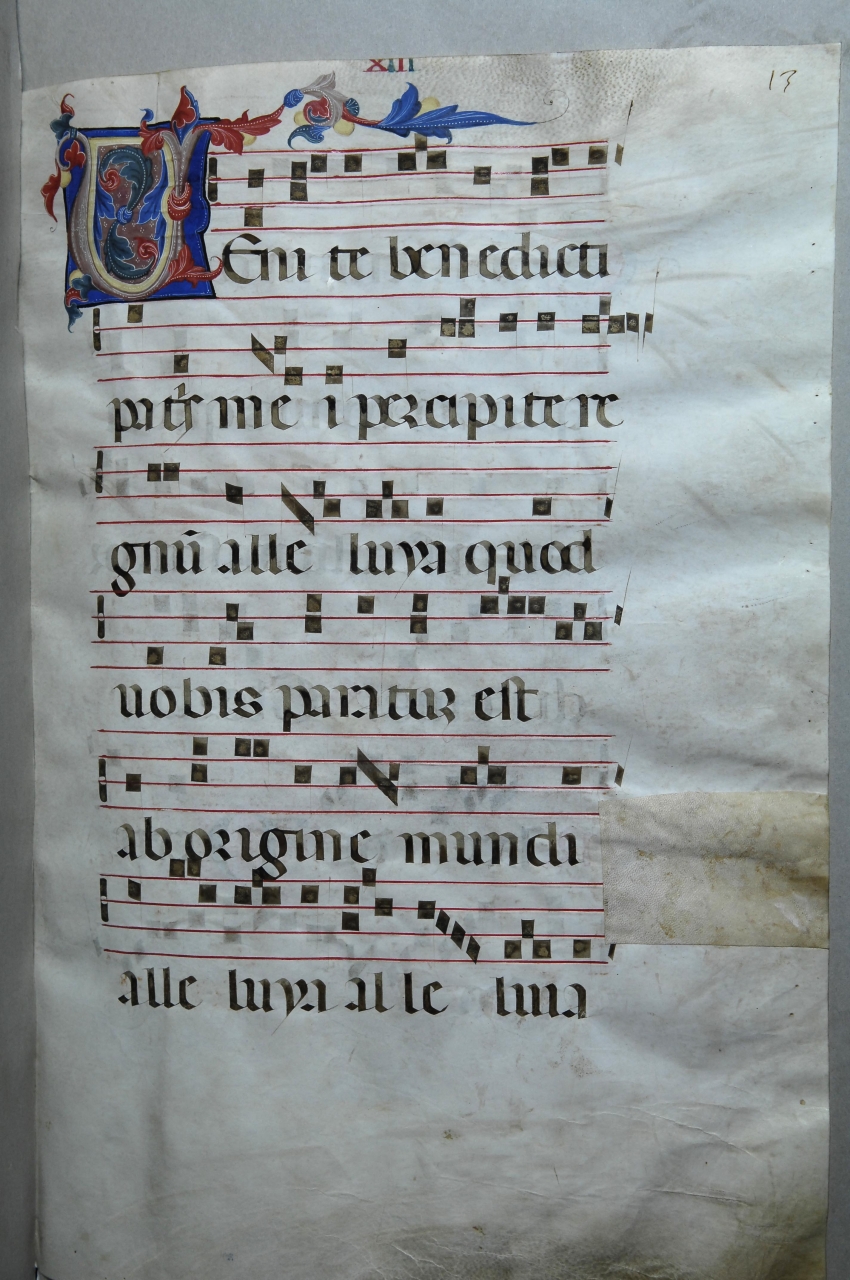 XIII
13
VEni te benedicti
patris me i percipite re
gnū alle luya quod
uobis paratur est
ab origine mundi
alle luya al le luia